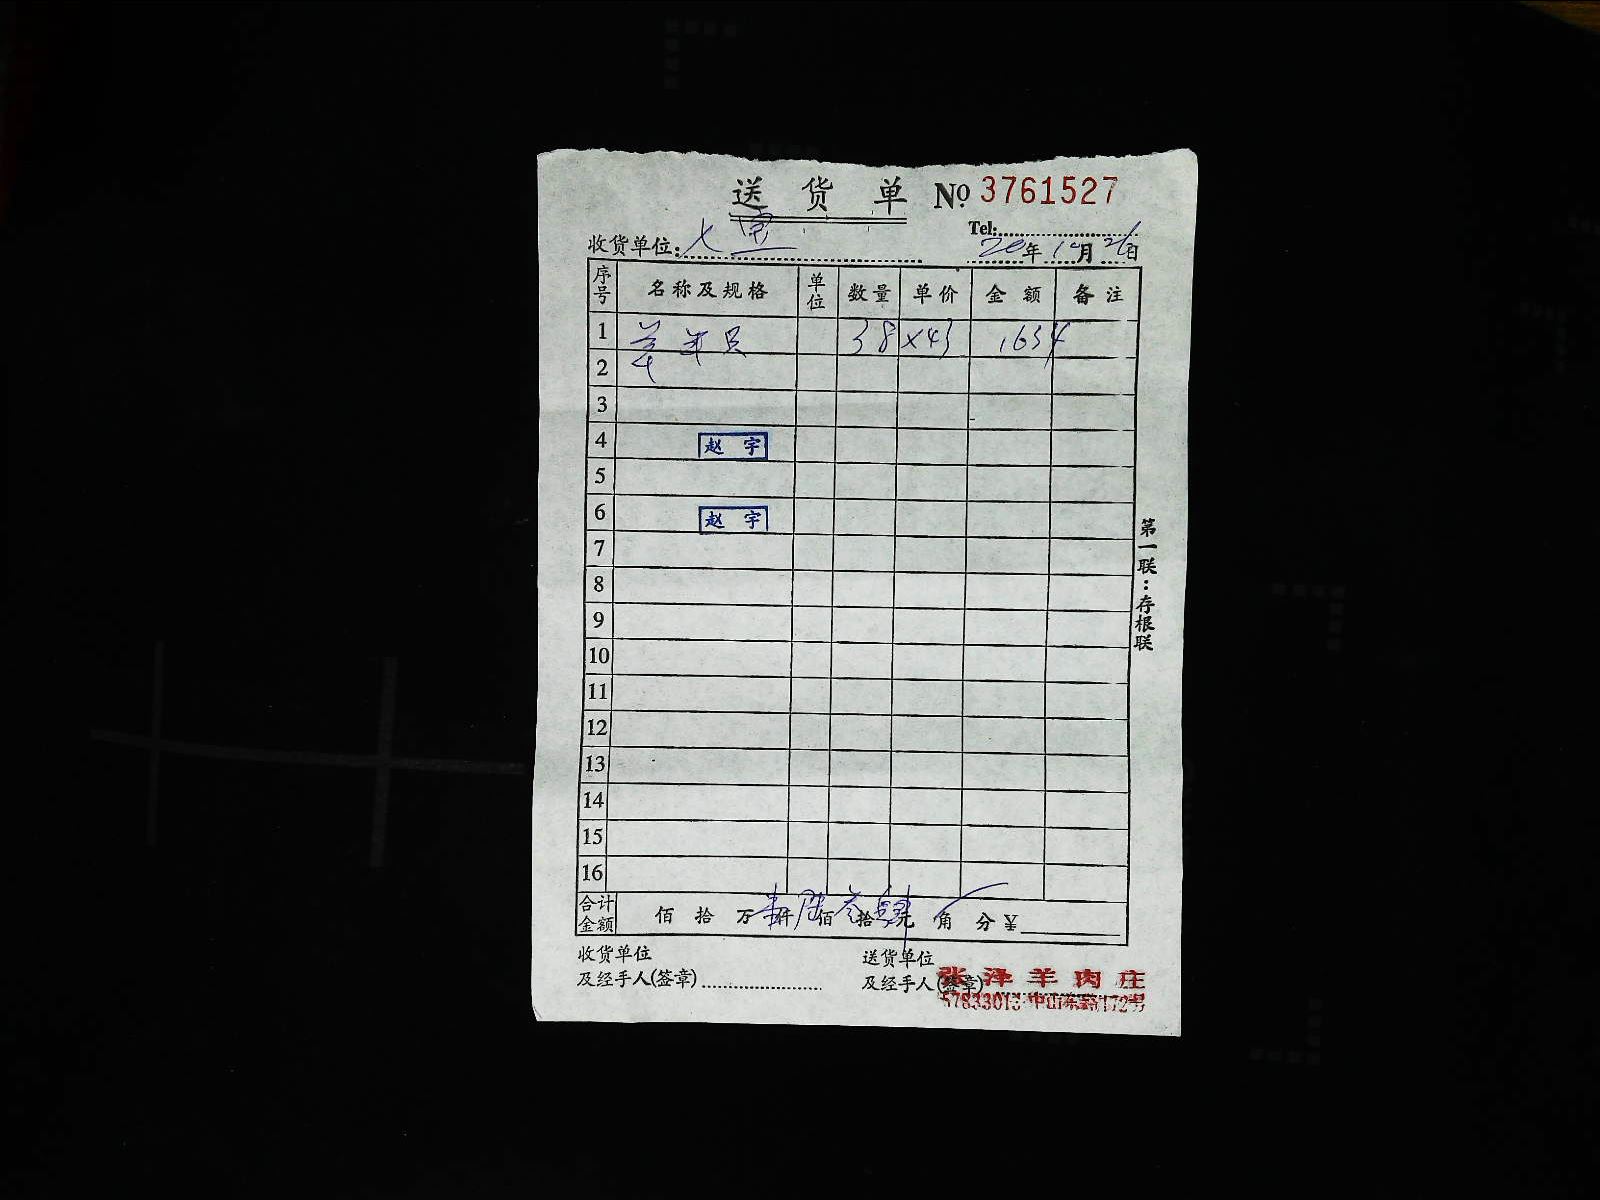 送货单 No 3761527
Tel:
收货单位: 七宝 20年10月26日
序号 名称及规格 单位 数量 单价 金额 备注
1 羊 38 ×43 1634
2
3
4 赵宇
5
6 赵宇
7
8
9
10
11
12
13
14
15
16
合计金额 佰 拾 万 仟 陆 佰 叁 拾 肆 元 角 分 ¥
第一联：存根联
收货单位 送货单位
及经手人(签章) 及经手人(签章)
张泽羊肉庄
中山东路172号